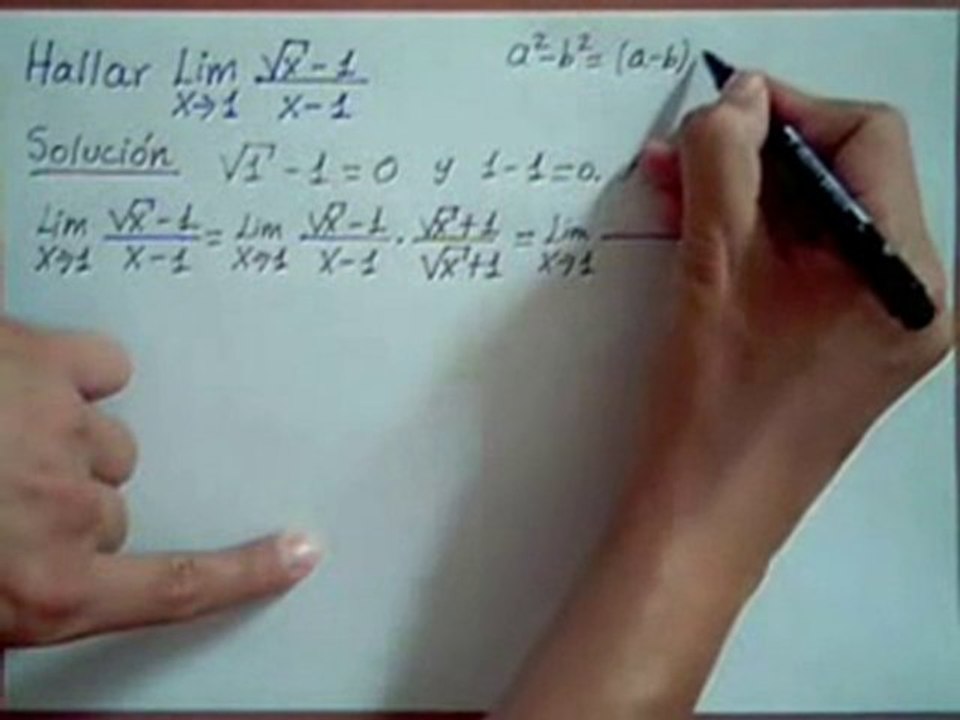 Hallar Lim x→1 (√x - 1)/(x - 1)
a² - b² = (a-b)
Solución √1 - 1 = 0 y 1 - 1 = 0.
Lim x→1 (√x - 1)/(x - 1) = Lim x→1 (√x - 1)/(x - 1) · (√x + 1)/(√x + 1) = Lim x→1